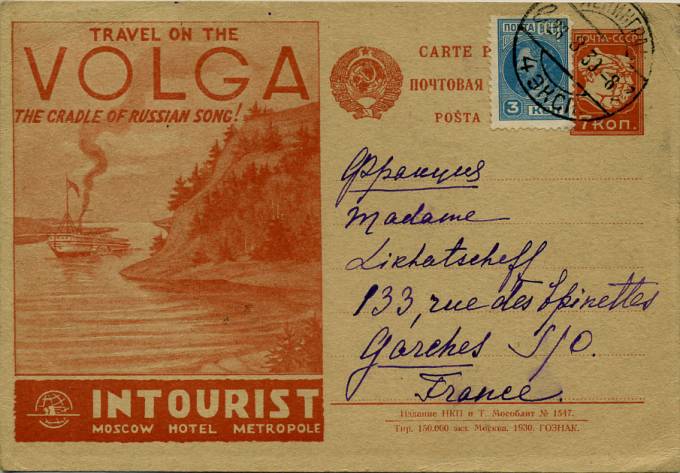 TRAVEL ON THE
VOLGA
THE CRADLE OF RUSSIAN SONG!
INTOURIST
MOSCOW HOTEL METROPOLE
CARTE P
ПОЧТОВАЯ
POŜTA
ПОЧТА СССР
3 КОП.
ПОЧТА-СССР
7 КОП.
Франция
Madame
Likhatscheff
133, rue des Spinettes
Garches S/O.
France.
Издание НКП и Т. Мособлит № 1547.
Тир. 150.000 экз. Москва. 1930. ГОЗНАК.